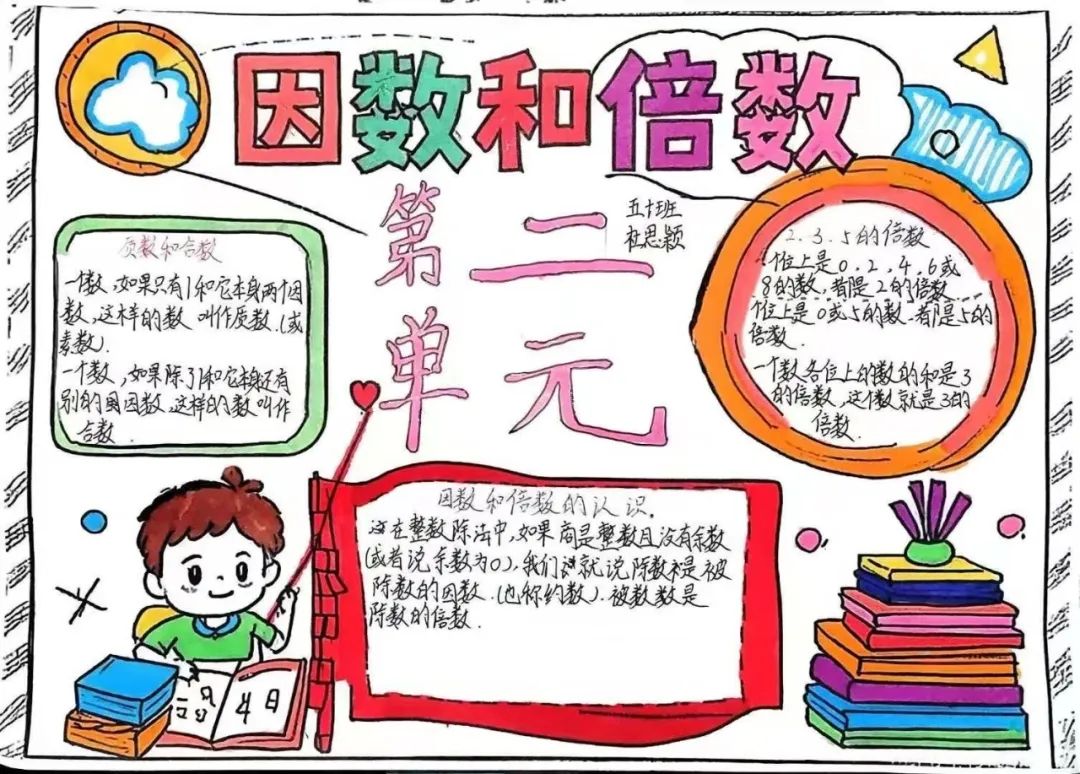 因数和倍数
第二单元
五十班
杜思颖
质数和合数
一个数,如果只有1和它本身两个因
数,这样的数 叫作质数.(或
素数).
一个数,如果除了1和它本身还有
别的因数,这样的数叫作
合数.
2.3.5的倍数
个位上是0,2,4,6或
8的数,都是2的倍数
个位上是0或5的数.都是5的
倍数.
一个数各位上的数的和是3
的倍数,这个数就是3的
倍数.
因数和倍数的认识.
在整数除法中,如果商是整数且没有余数
(或者说余数为0),我们就说除数是被
除数的因数.(也称约数).被数数是
除数的倍数.
4日